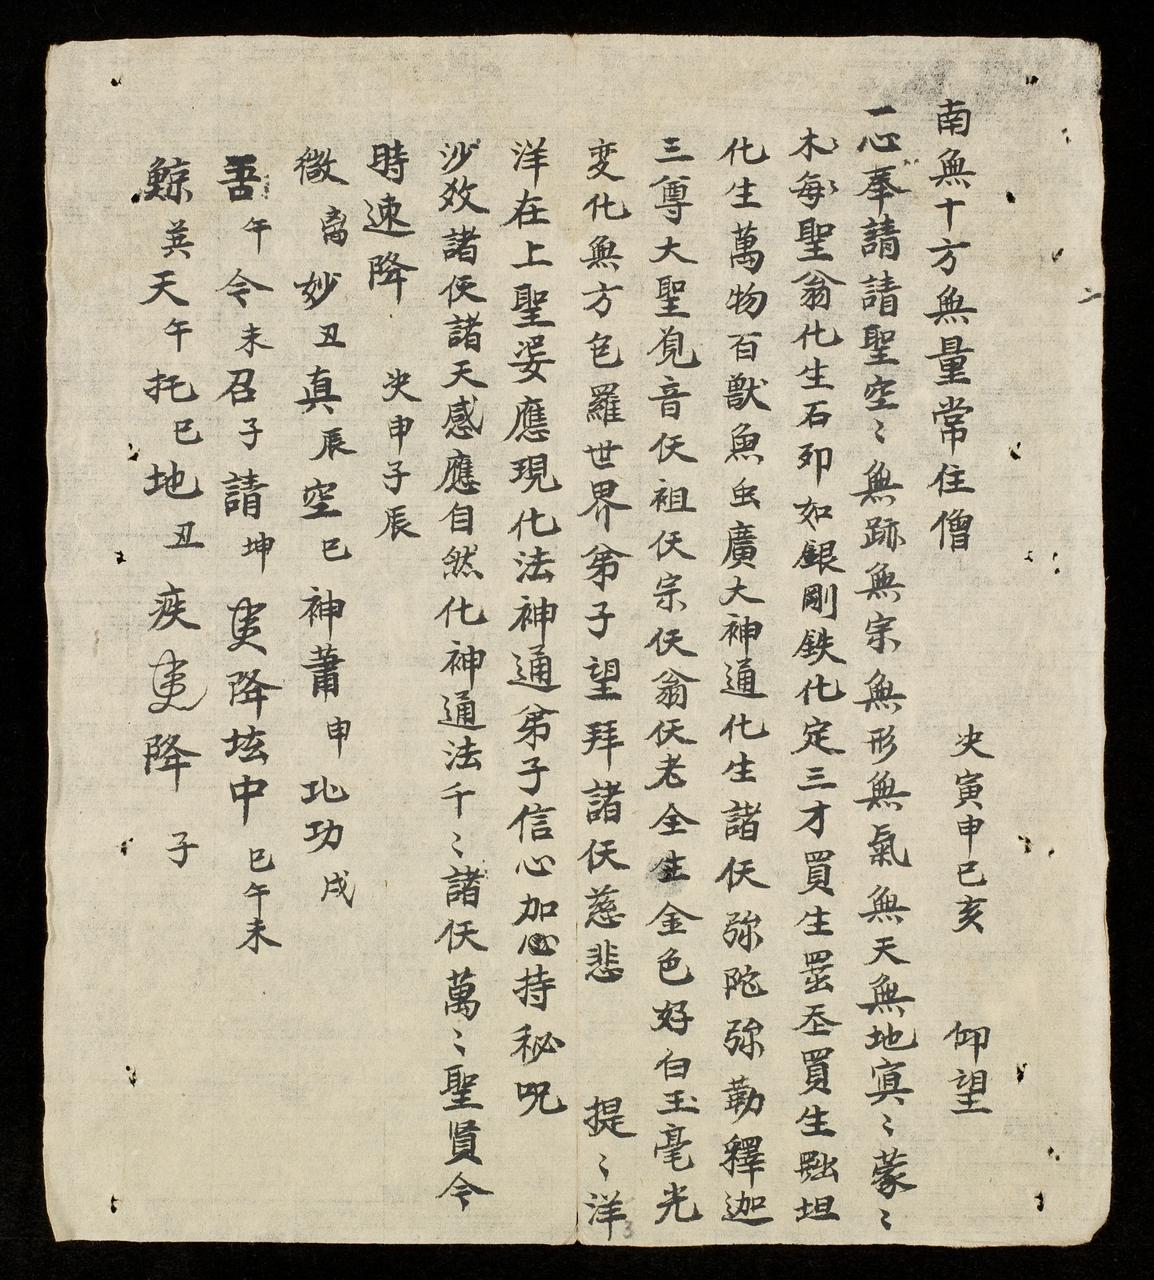 南無十方無量常住僧 決寅申巳亥 仰望
一心奉請請聖空〻無跡無宗無形無氣無天無地冥〻蒙〻
木每聖翁化生石卵如銀剛鉄化定三才買生罡丕買生 坦
化生萬物百獸魚虫廣大神通化生諸仸弥陀弥勒釋迦
三尊大聖覓音仸祖仸宗仸翁仸老全生金色好白玉毫光
変化無方包羅世界弟子望拜諸仸慈悲 提〻洋
洋在上聖娑應現化法神通弟子信心加持秘呪
沙效諸仸諸天感應自然化神通法千〻諸仸萬〻聖賢今
時速降 决申子辰
微离妙丑真辰空巳神蕭申北功戌
吾午令未召子請坤 降坛中巳午未
鯨英天午托巳地丑疾 降子
二
3